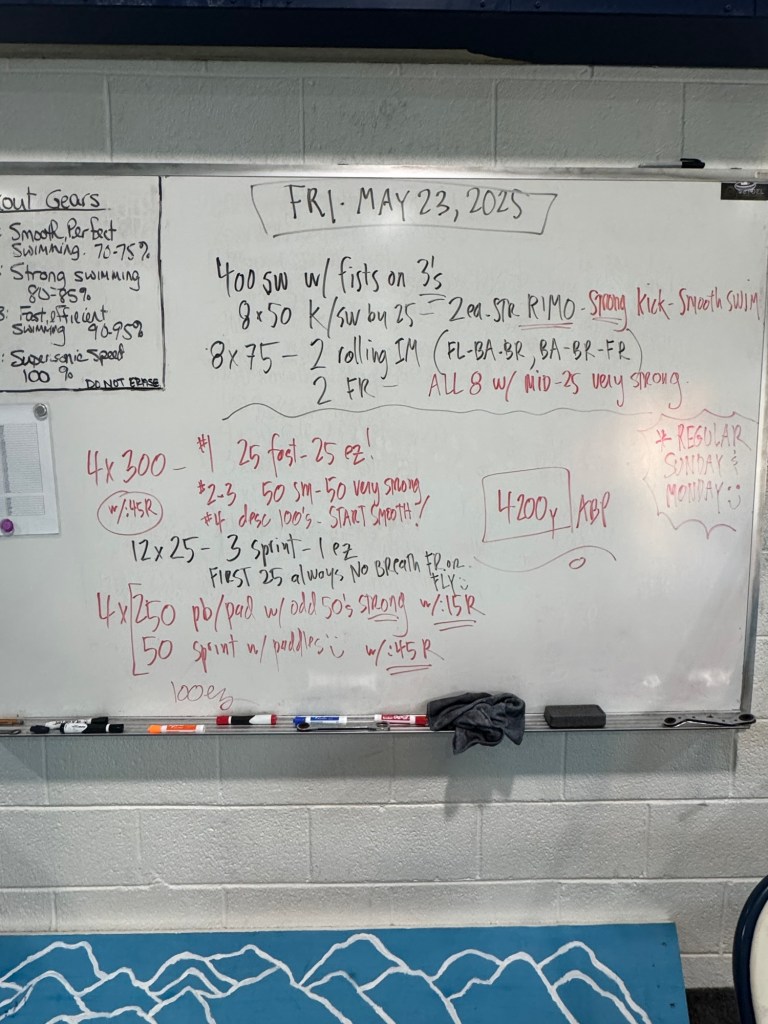 out Gears
Smooth, Perfect
Swimming. 70-75%
Strong swimming
80-85%
3: Fast, efficient
swimming 90-95%
: Supersonic Speed
100 %
DO NOT ERASE
FRI. MAY 23, 2025
400 sw w/ fists on 3's
8x50 K/sw by 25 = 2ea. STR RIMO - Strong Kick - Smooth SWIM
8x75 - 2 rolling IM (FL-BA-BR, BA-BR-FR)
2 FR - ALL 8 w/ MID-25 very strong.
4x300 - #1 25 fast - 25 ez!
w/:45R
#2-3 50 sm - 50 very strong
#4 desc 100's - START SMOOTH!
* REGULAR
SUNDAY &
MONDAY :)
4200y ABP
12x25 - 3 sprint - 1 ez
FIRST 25 always NO BREATH FR or
FLY :)
4x [250 pb/pad w/ odd 50's strong w/:15R
[50 sprint w/ paddles :) w/:45R
100 ez